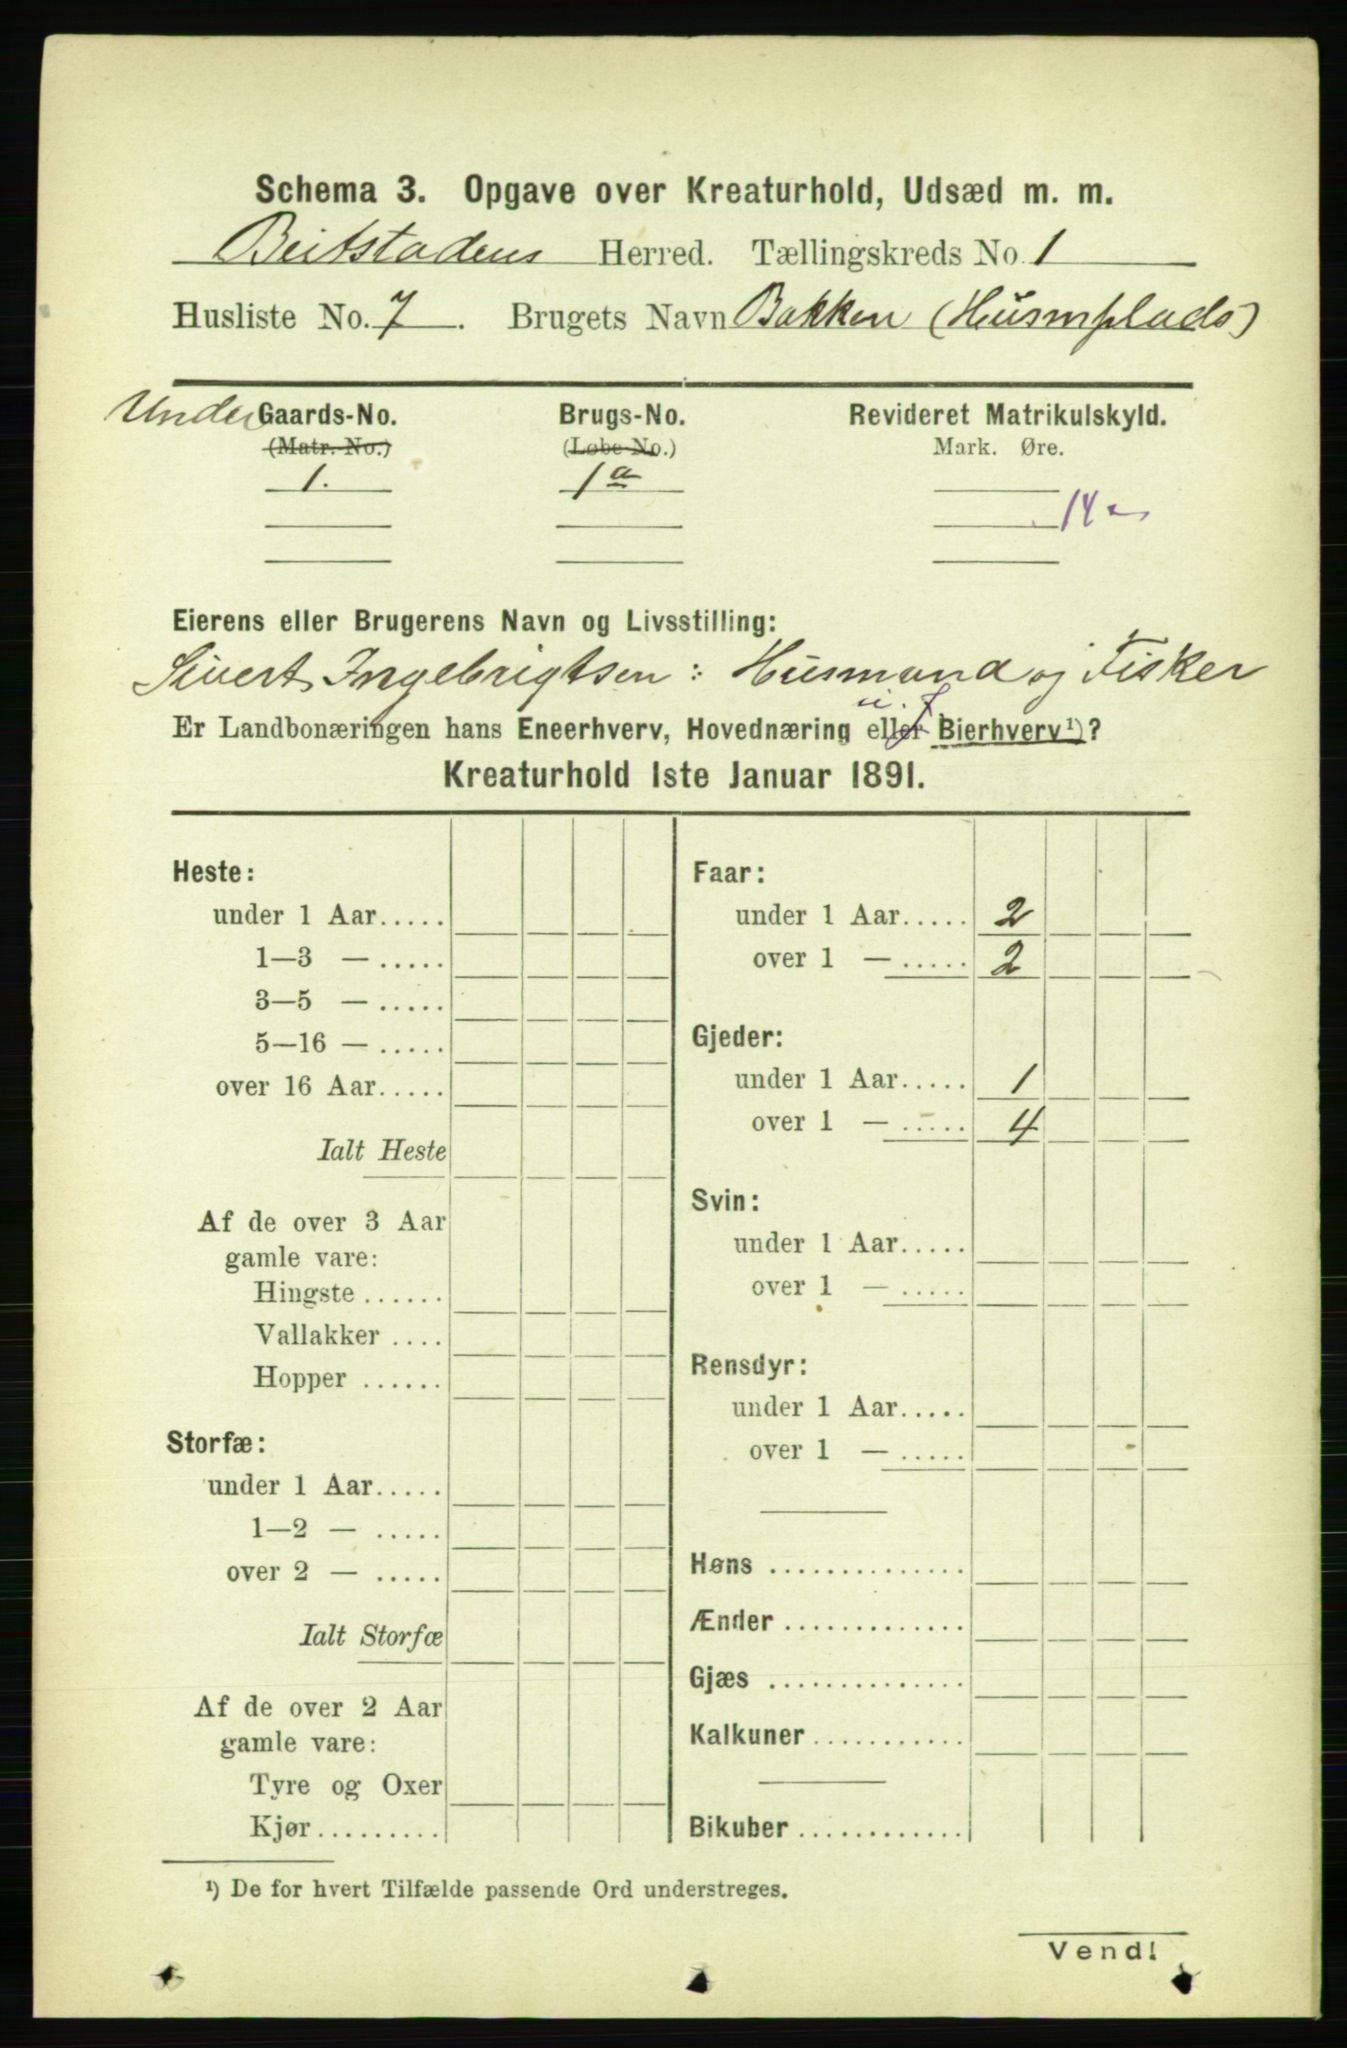 Schema 3. Opgave over Kreaturhold, Udsæd m. m.
Beitstadens Herred. Tællingskreds No. 1
Husliste No. 7. Brugets Navn Bakken (Husmplads)
Under Gaards-No. Brugs-No. Revideret Matrikulskyld.
(Matr. No.) (Løbe-No.) Mark. Øre.
1. 1a
14
Eierens eller Brugerens Navn og Livsstilling:
Sivert Ingebrigtsen: Husmand og Fisker
Er Landbonæringen hans Eneerhverv, Hovednæring eller Bierhverv¹)?
Kreaturhold 1ste Januar 1891.
Heste:
under 1 Aar.....
1—3 — .....
3—5 — .....
5—16 — .....
over 16 Aar.....
Ialt Heste
Af de over 3 Aar
gamle vare:
Hingste ......
Vallakker ....
Hopper ......
Storfæ:
under 1 Aar.....
1—2 — .....
over 2 — .....
Ialt Storfæ
Af de over 2 Aar
gamle vare:
Tyre og Oxer
Kjør.........
Faar:
under 1 Aar..... 2
over 1 — ..... 2
Gjeder:
under 1 Aar..... 1
over 1 — ..... 4
Svin:
under 1 Aar.....
over 1 — .....
Rensdyr:
under 1 Aar.....
over 1 — .....
Høns ..............
Ænder .............
Gjæs ..............
Kalkuner ...........
Bikuber ............
¹) De for hvert Tilfælde passende Ord understreges.
Vend!